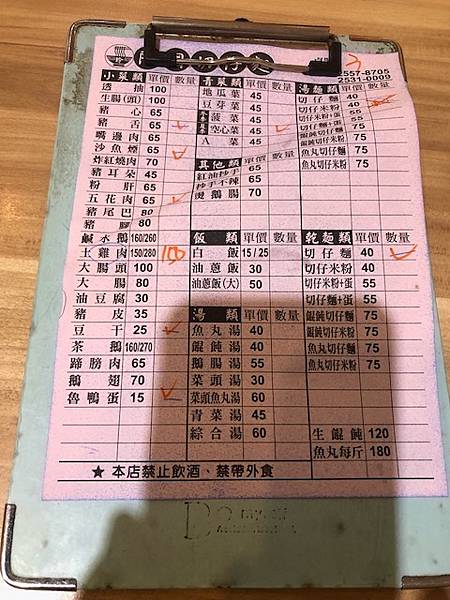 2557-8705
2531-0009
小菜類 單價 數量
透抽 100
生腸(頭) 100
豬心 65
豬舌 65
嘴邊肉 65
沙魚煙 70
炸紅燒肉 70
豬耳朵 45
粉肝 65
五花肉 65
豬尾巴 80
豬腳 80
鹹水鵝 160/260
土雞肉 150/280 100
大腸頭 100
大腸 80
油豆腐 30
豬皮 35
豆干 25
茶鵝 160/270
蹄膀肉 65
鵝翅 70
魯鴨蛋 15
青菜類 單價 數量
地瓜菜 45
豆芽菜 45
菠菜 45
空心菜 45
A菜 45
其他類 單價 數量
紅油抄手 65
抄手不辣 65
燙鵝腸 70
飯類 單價 數量
白飯 15/25
油蔥飯 30
油蔥飯(大) 50
湯類 單價 數量
魚丸湯 40
餛飩湯 40
鵝腸湯 55
菜頭湯 30
菜頭魚丸湯 60
青菜湯 45
綜合湯 60
湯麵類 單價 數量
切仔麵 40
切仔米粉 40
切仔米粉+蛋 55
切仔麵+蛋 55
餛飩切仔麵 75
餛飩切仔米粉 75
魚丸切仔麵 75
魚丸切仔米粉 75
乾麵類 單價 數量
切仔麵 40
切仔米粉 40
切仔米粉+蛋 55
切仔麵+蛋 55
餛飩切仔麵 75
餛飩切仔米粉 75
魚丸切仔麵 75
魚丸切仔米粉 75
生餛飩 120
魚丸每斤 180
★本店禁止飲酒、禁帶外食